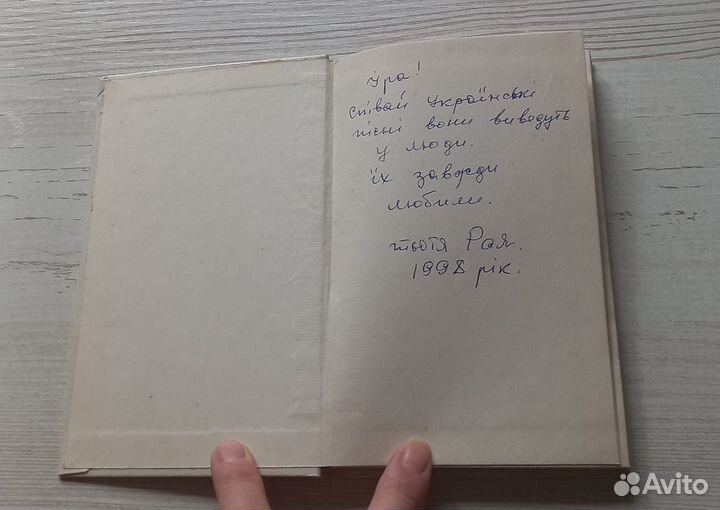 Іра!
Співай Українські
пісні вони виведуть
у люди.
їх завжди
любили.
тьотя Рая.
1998 рік.
Avito